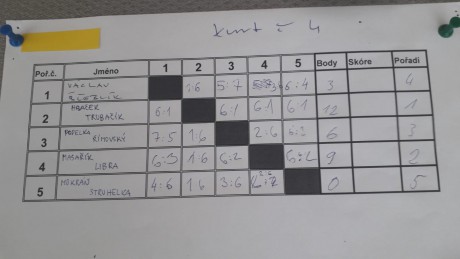 kurt č 4
Poř.č. Jméno 1 2 3 4 5 Body Skóre Pořadí
1 VÁCLAV 1:6 5:7 6:4 3 4
2 TRUBAČÍK 6:1 6:1 6:1 6:1 12 1
3 POPELKA 7:5 1:6 2:6 6:3 6 3
4 MASAŘÍK LIBRA 6:3 1:6 6:2 6:2 9 2
5 STRUHELKA 4:6 1:6 3:6 0 5